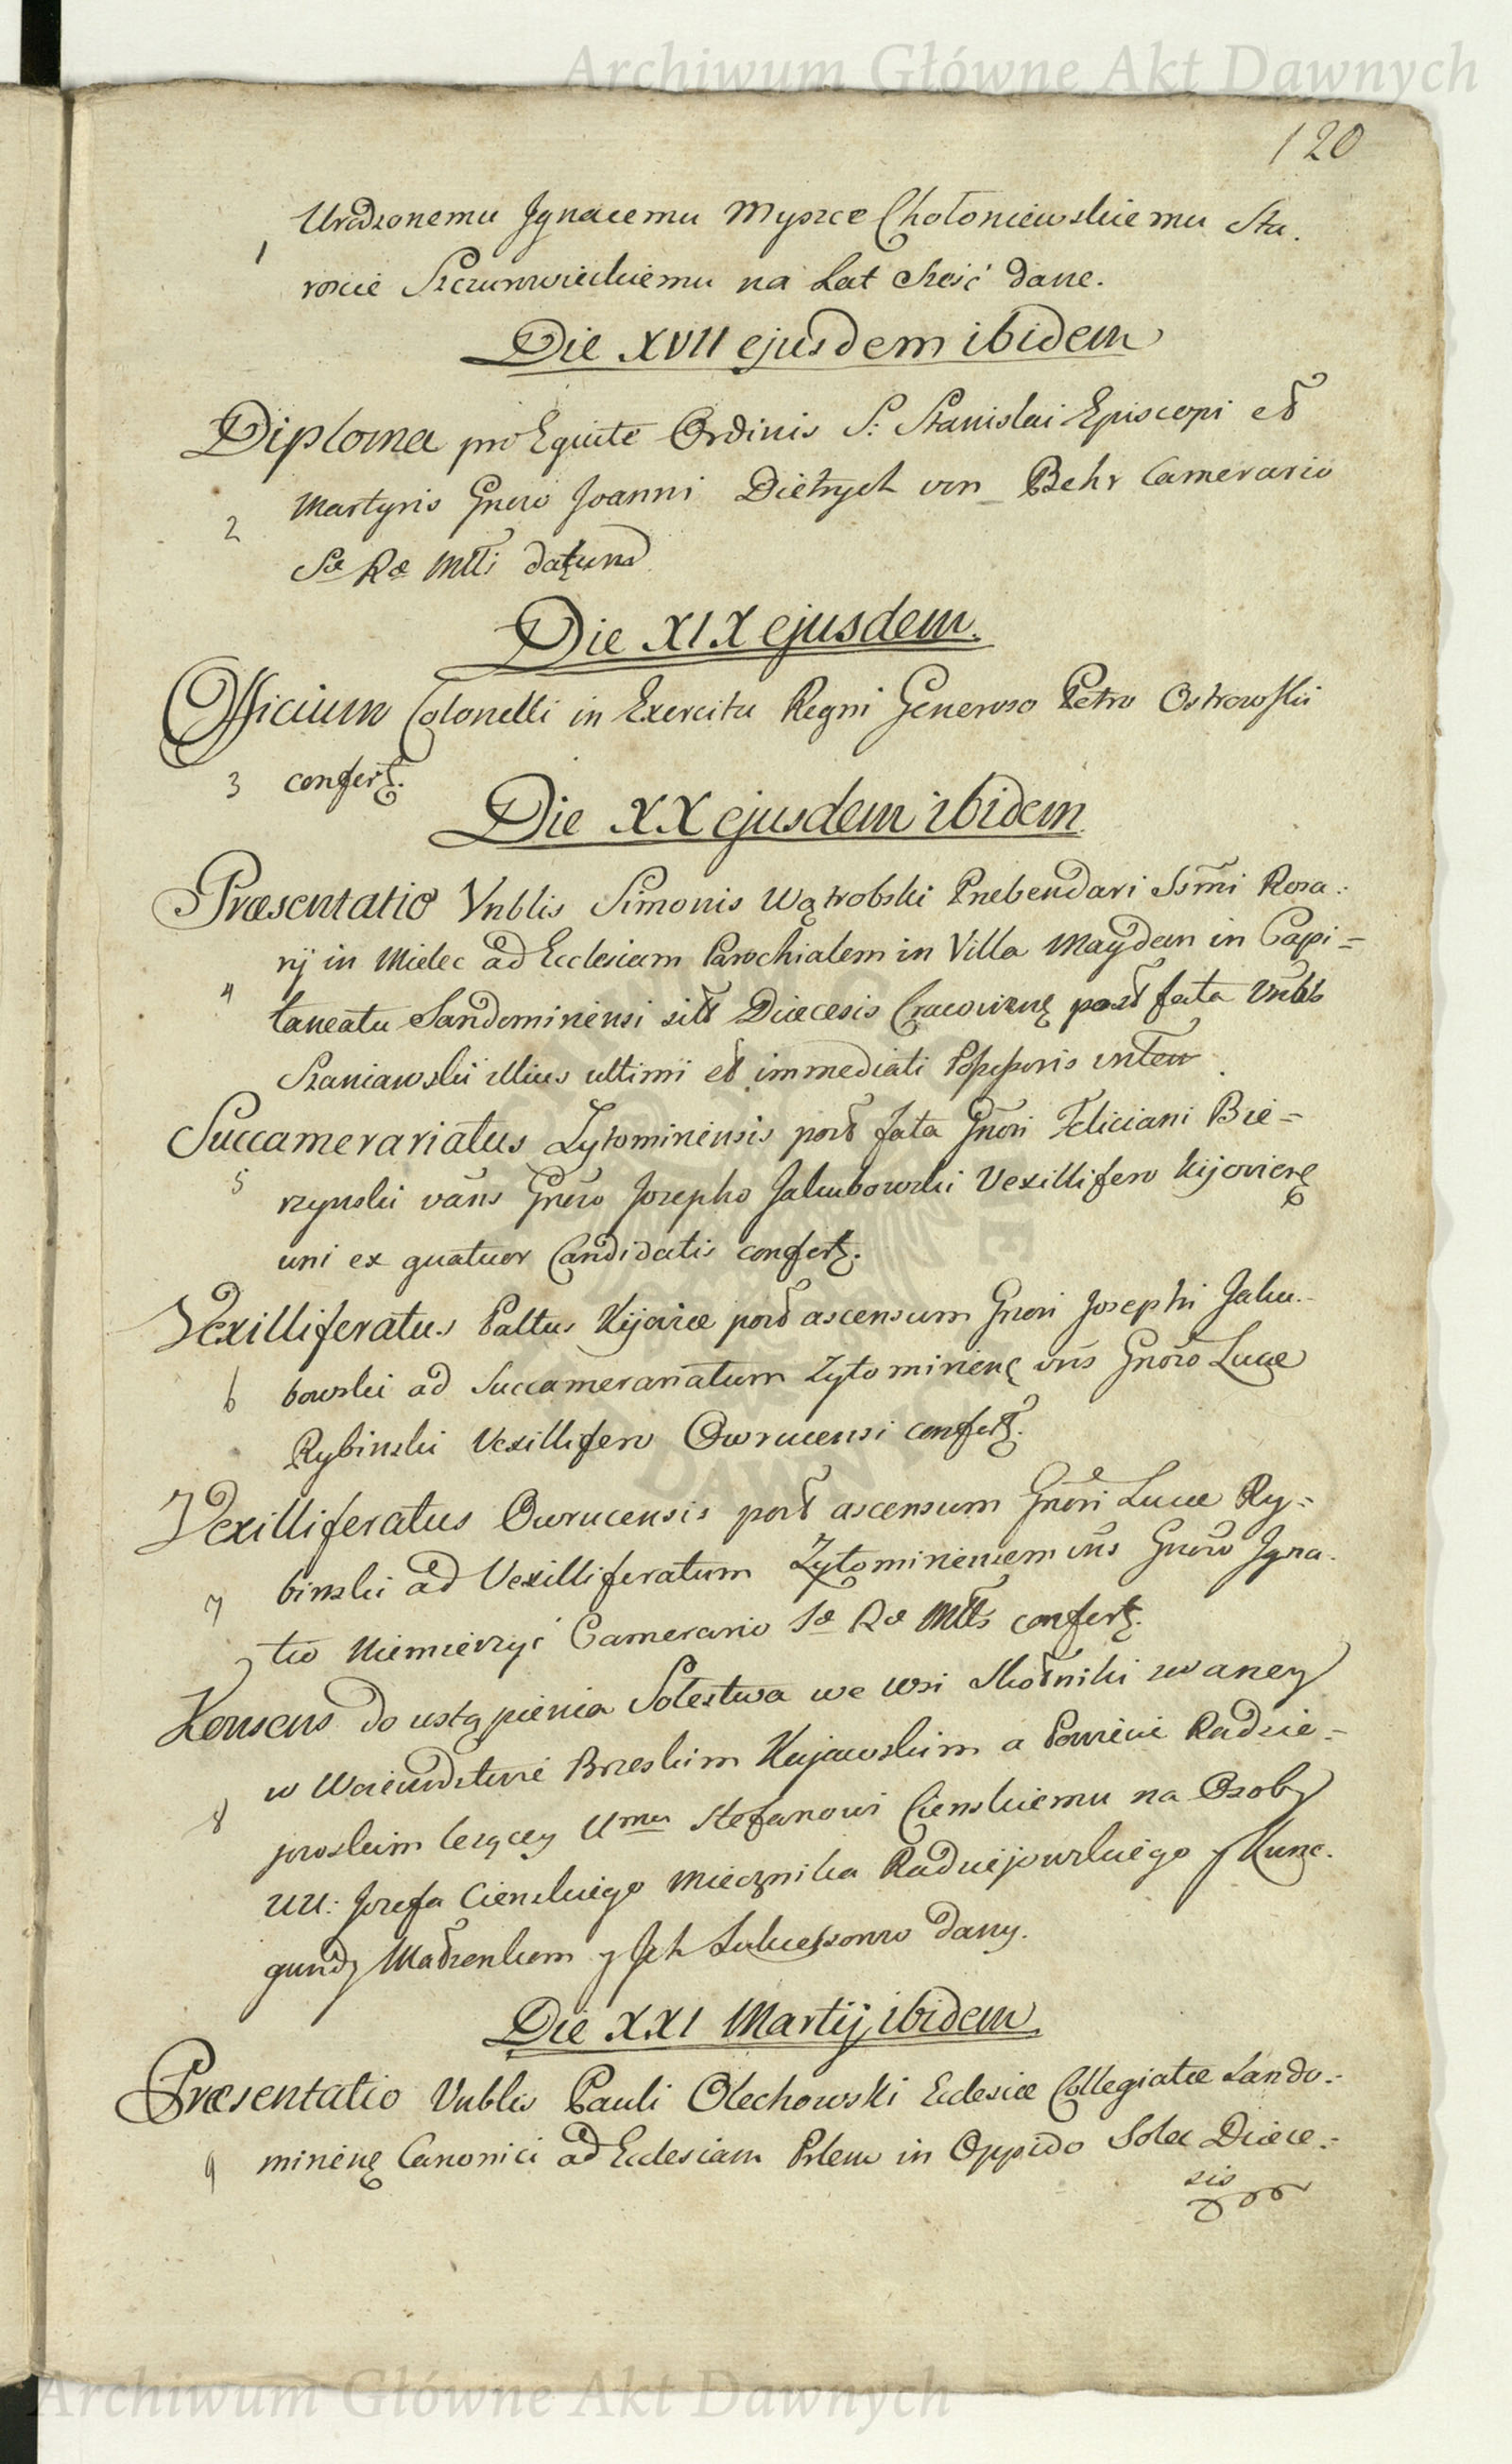 Archiwum Główne Akt Dawnych
120
Urodzonemu Jgnacemu Myszce Chołoniewskiemu Sta.
1
roscie Szczurowieckiemu na Lat Sześć dane.
Die XVII ejusdem ibidem
Diploma pro Equite Ordinis S: Stanislai Episcopi et
Martyris Gnero Joanni Dietrych von Behr Camerario
2
Sæ Ræ Mtti datum
Die XIX ejusdem.
Officium Colonelli in Exercitu Regni Generoso Petro Ostrowski
3 confert.
Die XX ejusdem ibidem
Præsentatio Vnblis Simonis Wątrobski Præbendari Ssmi Rosa:
rij in Mielec ad Ecclesiam Parochialem in Villa Maydan in Capi=
4
taneatu Sandomiriensi sitt Diæcesis Cracovienę post fata Vnbls
Szaniawski illius ultimi et immediati Possessoris
Succamerariatus Zytomiriensis post fata Gnori Feliciani Bie=
5
rzynski vans Gnero Josepho Jakubowski Vexillifero Kijovienę
uni ex quatuor Candidatis confert.
Vexilliferatus Paltus Kijoviæ post ascensum Gnori Josephi Jaku.
6 bowski ad Succamerariatum Zytomirienę vns Gnoro Lucæ
Rybinski Vexillifero Owrucensi confert.
Vexilliferatus Owrucensis post ascensum Gnori Lucæ Ry=
7 binski ad Vexilliferatum Zytomiriensem vns Gnero Jgna.
tio Niemierzyć Camerario Sæ Ræ Mtts confert.
Konsens do ustąpienia Sołestwa we wsi Skotniki zwaney
w Woiewodztwie Brzeskim Kujawskim a Powiecie Radzie=
8
jowskim leżącey Umu Stefanowi Cienskiemu na Osoby
UU: Jozefa Cienskiego Miecznika Radziejowskiego y Kune.
gundy Małżenkom y Jch Sukcessorow dany.
Die XXI Martij ibidem
Præsentatio Vnblis Pauli Olechowski Ecclesiæ Collegiatæ Sando:
9 mirienę Canonici ad Ecclesiam Prlem in Oppido Solec Diæce:
sis
Archiwum Główne Akt Dawnych